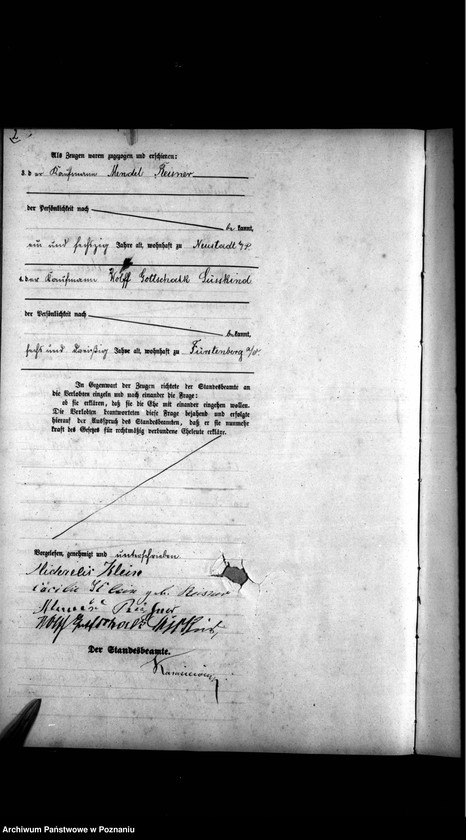 2
Als Zeugen waren zugezogen und erschienen:
3. der Kaufmann Mendel Reuner
der Persönlichkeit nach
be kannt,
ein und sechszig Jahre alt, wohnhaft zu Neustadt b/P.
4. der Kaufmann Wolff Gottschalk Süsskind
der Persönlichkeit nach
bekannt,
sechs und dreißig Jahre alt, wohnhaft zu Fürstenberg a/O.
In Gegenwart der Zeugen richtete der Standesbeamte an
die Verlobten einzeln und nach einander die Frage:
ob sie erklären, daß sie die Ehe mit einander eingehen wollen.
Die Verlobten beantworteten diese Frage bejahend und erfolgte
hierauf der Ausspruch des Standesbeamten, daß er sie nunmehr
kraft des Gesetzes für rechtmäßig verbundene Eheleute erkläre.
Vorgelesen, genehmigt und unterschrieben
Michaelis Klein
Cäcilie Klein geb.
Wolf Gottschalk Süsskind
Der Standesbeamte.
Archiwum Państwowe w Poznaniu